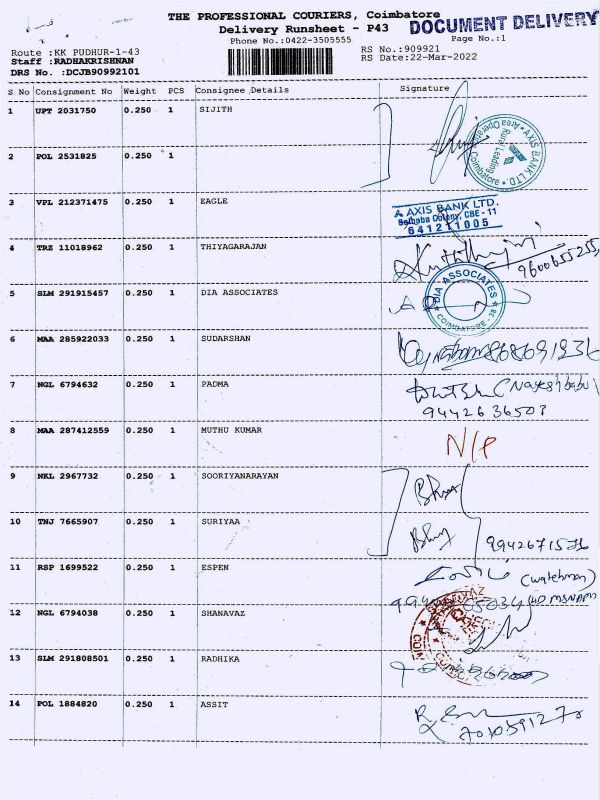 THE PROFESSIONAL COURIERS, Coimbatore
Delivery Runsheet - P43
DOCUMENT DELIVERY
Phone No.:0422-3505555
Page No.:1
Route :KK PUDHUR-1-43
RS No.:909921
Staff :RADHAKRISHNAN
RS Date:22-Mar-2022
DRS No. :DCJB90992101
S No Consignment No Weight PCS Consignee Details Signature
1 UPT 2031750 0.250 1 SIJITH
2 POL 2531825 0.250 1
AXIS BANK LTD. Rural Lending Area Operations Coimbatore
3 VPL 212371475 0.250 1 EAGLE
AXIS BANK LTD.
Saibaba Colony, CBE - 11
641211005
4 TRZ 11018962 0.250 1 THIYAGARAJAN
9600655255
5 SLM 291915457 0.250 1 DIA ASSOCIATES
DIA ASSOCIATES COIMBATORE - 38
6 MAA 285922033 0.250 1 SUDARSHAN
7 NGL 6794632 0.250 1 PADMA
(Nageshbabu)
9442636503
8 MAA 287412559 0.250 1 MUTHU KUMAR
N/P
9 NKL 2967732 0.250 1 SOORIYANARAYAN
10 TNJ 7665907 0.250 1 SURIYAA
11 RSP 1699522 0.250 1 ESPEN
(Watchman)
12 NGL 6794038 0.250 1 SHANAVAZ
13 SLM 291808501 0.250 1 RADHIKA
14 POL 1884820 0.250 1 ASSIT